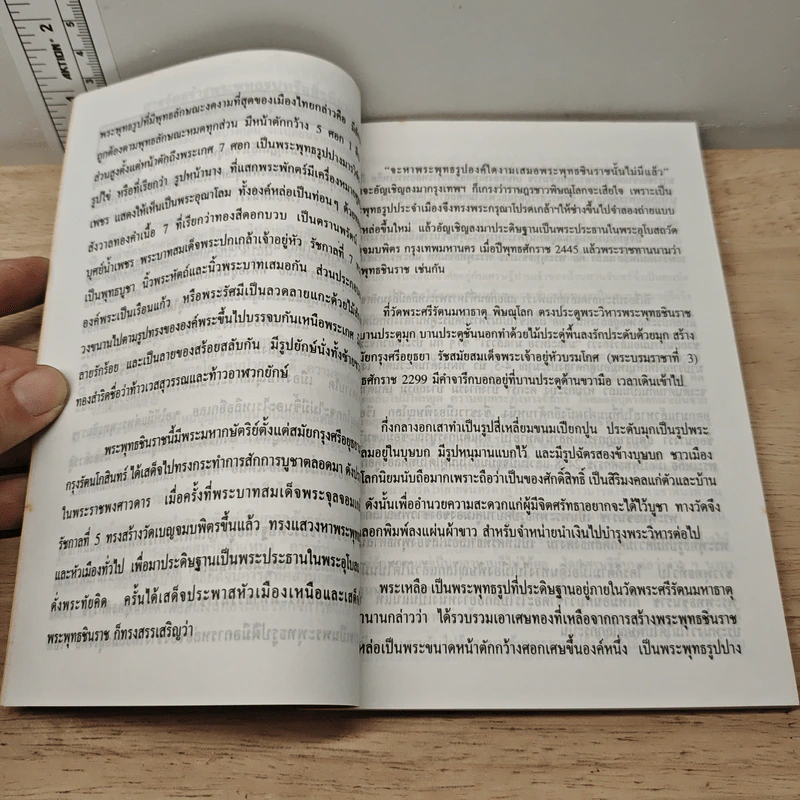 AKTION
2
3
4
5
พระพุทธรูปที่มีพุทธลักษณะงดงามที่สุดของเมืองไทยกล่าวคือ
ถูกต้องตามพุทธลักษณะหมดทุกส่วน มีหน้าตักกว้าง 5 ศอก 1
ส่วนสูงตั้งแต่หน้าตักถึงพระเกศ 7 ศอก เป็นพระพุทธรูปปางมาร
รูปไข่ หรือที่เรียกว่า รูปหน้านาง ที่แสกพระพักตร์มีเครื่องหมาย
เพชร แสดงให้เห็นเป็นพระอุณาโลม ทั้งองค์หล่อเป็นท่อนๆ ด้วย
สังวาลทองคำเนื้อ 7 ที่เรียกว่าทองสีดอกบวบ เป็นตรานพรัตน์
บุศย์น้ำเพชร พระบาทสมเด็จพระปกเกล้าเจ้าอยู่หัว รัชกาลที่ 7
เป็นพุทธบูชา นิ้วพระหัตถ์และนิ้วพระบาทเสมอกัน ส่วนประกอบ
องค์พระเป็นเรือนแก้ว หรือพระรัศมีเป็นลวดลายแกะด้วยไม้สัก
วงขนานไปตามรูปทรงขององค์พระขึ้นไปบรรจบกันเหนือพระเกศ
ลายรักร้อย และเป็นลายของสร้อยสลับกัน มีรูปยักษ์นั่งทั้งซ้ายขวา
ทองสำริดชื่อว่าท้าวเวสสุวรรณและท้าวอาฬวกยักษ์
พระพุทธชินราชนี้มีพระมหากษัตริย์ตั้งแต่สมัยกรุงศรีอยุธยา
กรุงรัตนโกสินทร์ ได้เสด็จไปทรงกระทำการสักการบูชาตลอดมา ดัง
ในพระราชพงศาวดาร เมื่อครั้งที่พระบาทสมเด็จพระจุลจอม
รัชกาลที่ 5 ทรงสร้างวัดเบญจมบพิตรขึ้นแล้ว ทรงแสวงหาพระพุทธ
และหัวเมืองทั่วไป เพื่อมาประดิษฐานเป็นพระประธานในพระอุโบส
ดั่งพระทัยคิด ครั้นได้เสด็จประพาสหัวเมืองเหนือและเสด็จ
พระพุทธชินราช ก็ทรงสรรเสริญว่า
"จะหาพระพุทธรูปองค์ใดงามเสมอพระพุทธชินราชนั้นไม่มีแล้ว"
จะอัญเชิญลงมากรุงเทพฯ ก็เกรงว่าราษฎรชาวพิษณุโลกจะเสียใจ เพราะเป็น
พุทธรูปประจำเมืองจึงทรงพระกรุณาโปรดเกล้าฯให้ช่างขึ้นไปจำลองถ่ายแบบ
หล่อขึ้นใหม่ แล้วอัญเชิญลงมาประดิษฐานเป็นพระประธานในพระอุโบสถวัด
จมบพิตร กรุงเทพมหานคร เมื่อปีพุทธศักราช 2445 แล้วพระราชทานนามว่า
พุทธชินราช เช่นกัน
ที่วัดพระศรีรัตนมหาธาตุ พิษณุโลก ตรงประตูพระวิหารพระพุทธชินราช
บานประตูมุก บานประตูชั้นนอกทำด้วยไม้ประตู่พื้นลงรักประดับด้วยมุก สร้าง
มัยกรุงศรีอยุธยา รัชสมัยสมเด็จพระเจ้าอยู่หัวบรมโกศ (พระบรมราชาที่ 3)
ธศักราช 2299 มีคำจารึกบอกอยู่ที่บานประตูด้านขวามือ เวลาเดินเข้าไป
กึ่งกลางอกเสาทำเป็นรูปสี่เหลี่ยมขนมเปียกปูน ประดับมุกเป็นรูปพระ
ลมอยู่ในบุษบก มีรูปหนุมานแบกไว้ และมีรูปฉัตรสองข้างบุษบก ชาวเมือง
โลกนิยมนับถือมากเพราะถือว่าเป็นของศักดิ์สิทธิ์ เป็นสิริมงคลแก่ตัวและบ้าน
ดังนั้นเพื่ออำนวยความสะดวกแก่ผู้มีจิตศรัทธาอยากจะได้ไว้บูชา ทางวัดจึง
ลอกพิมพ์ลงแผ่นผ้าขาว สำหรับจำหน่ายนำเงินไปบำรุงพระวิหารต่อไป
พระเหลือ เป็นพระพุทธรูปที่ประดิษฐานอยู่ภายในวัดพระศรีรัตนมหาธาตุ
านานกล่าวว่า ได้รวบรวมเอาเศษทองที่เหลือจากการสร้างพระพุทธชินราช
หล่อเป็นพระขนาดหน้าตักกว้างศอกเศษขึ้นองค์หนึ่ง เป็นพระพุทธรูปปาง